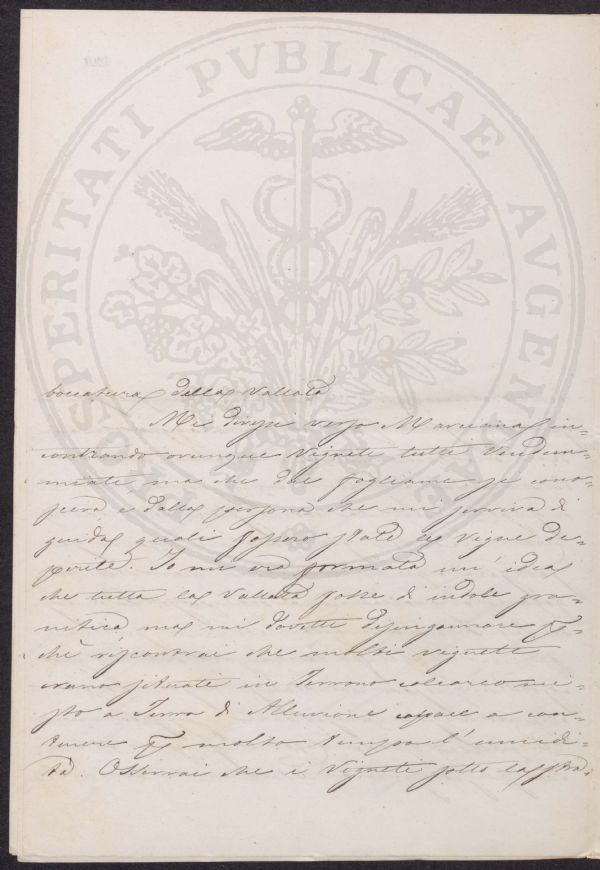 PROSPERITATI PVBLICAE AVGENDAE
boccatura della Vallata
Mi diressi verso Marciana, in-
contrando ovunque Vigneti tutti Vendem-
miate, ma che dal fogliame si cono-
sceva e dalla persona che mi serviva di
guida quali fossero state le vigne de-
perite. Io mi era formata un' idea
che tutta la Vallata fosse di indole gra-
nitica ma mi dovetti disingannare per-
chè riscontrai che molti vigneti
erano situati in Terreno calcareo mi-
sto a Terra di Alluvione capace a con-
tenere per molto tempo l'umidi-
tà. Osservai che i Vigneti sotto la stra-